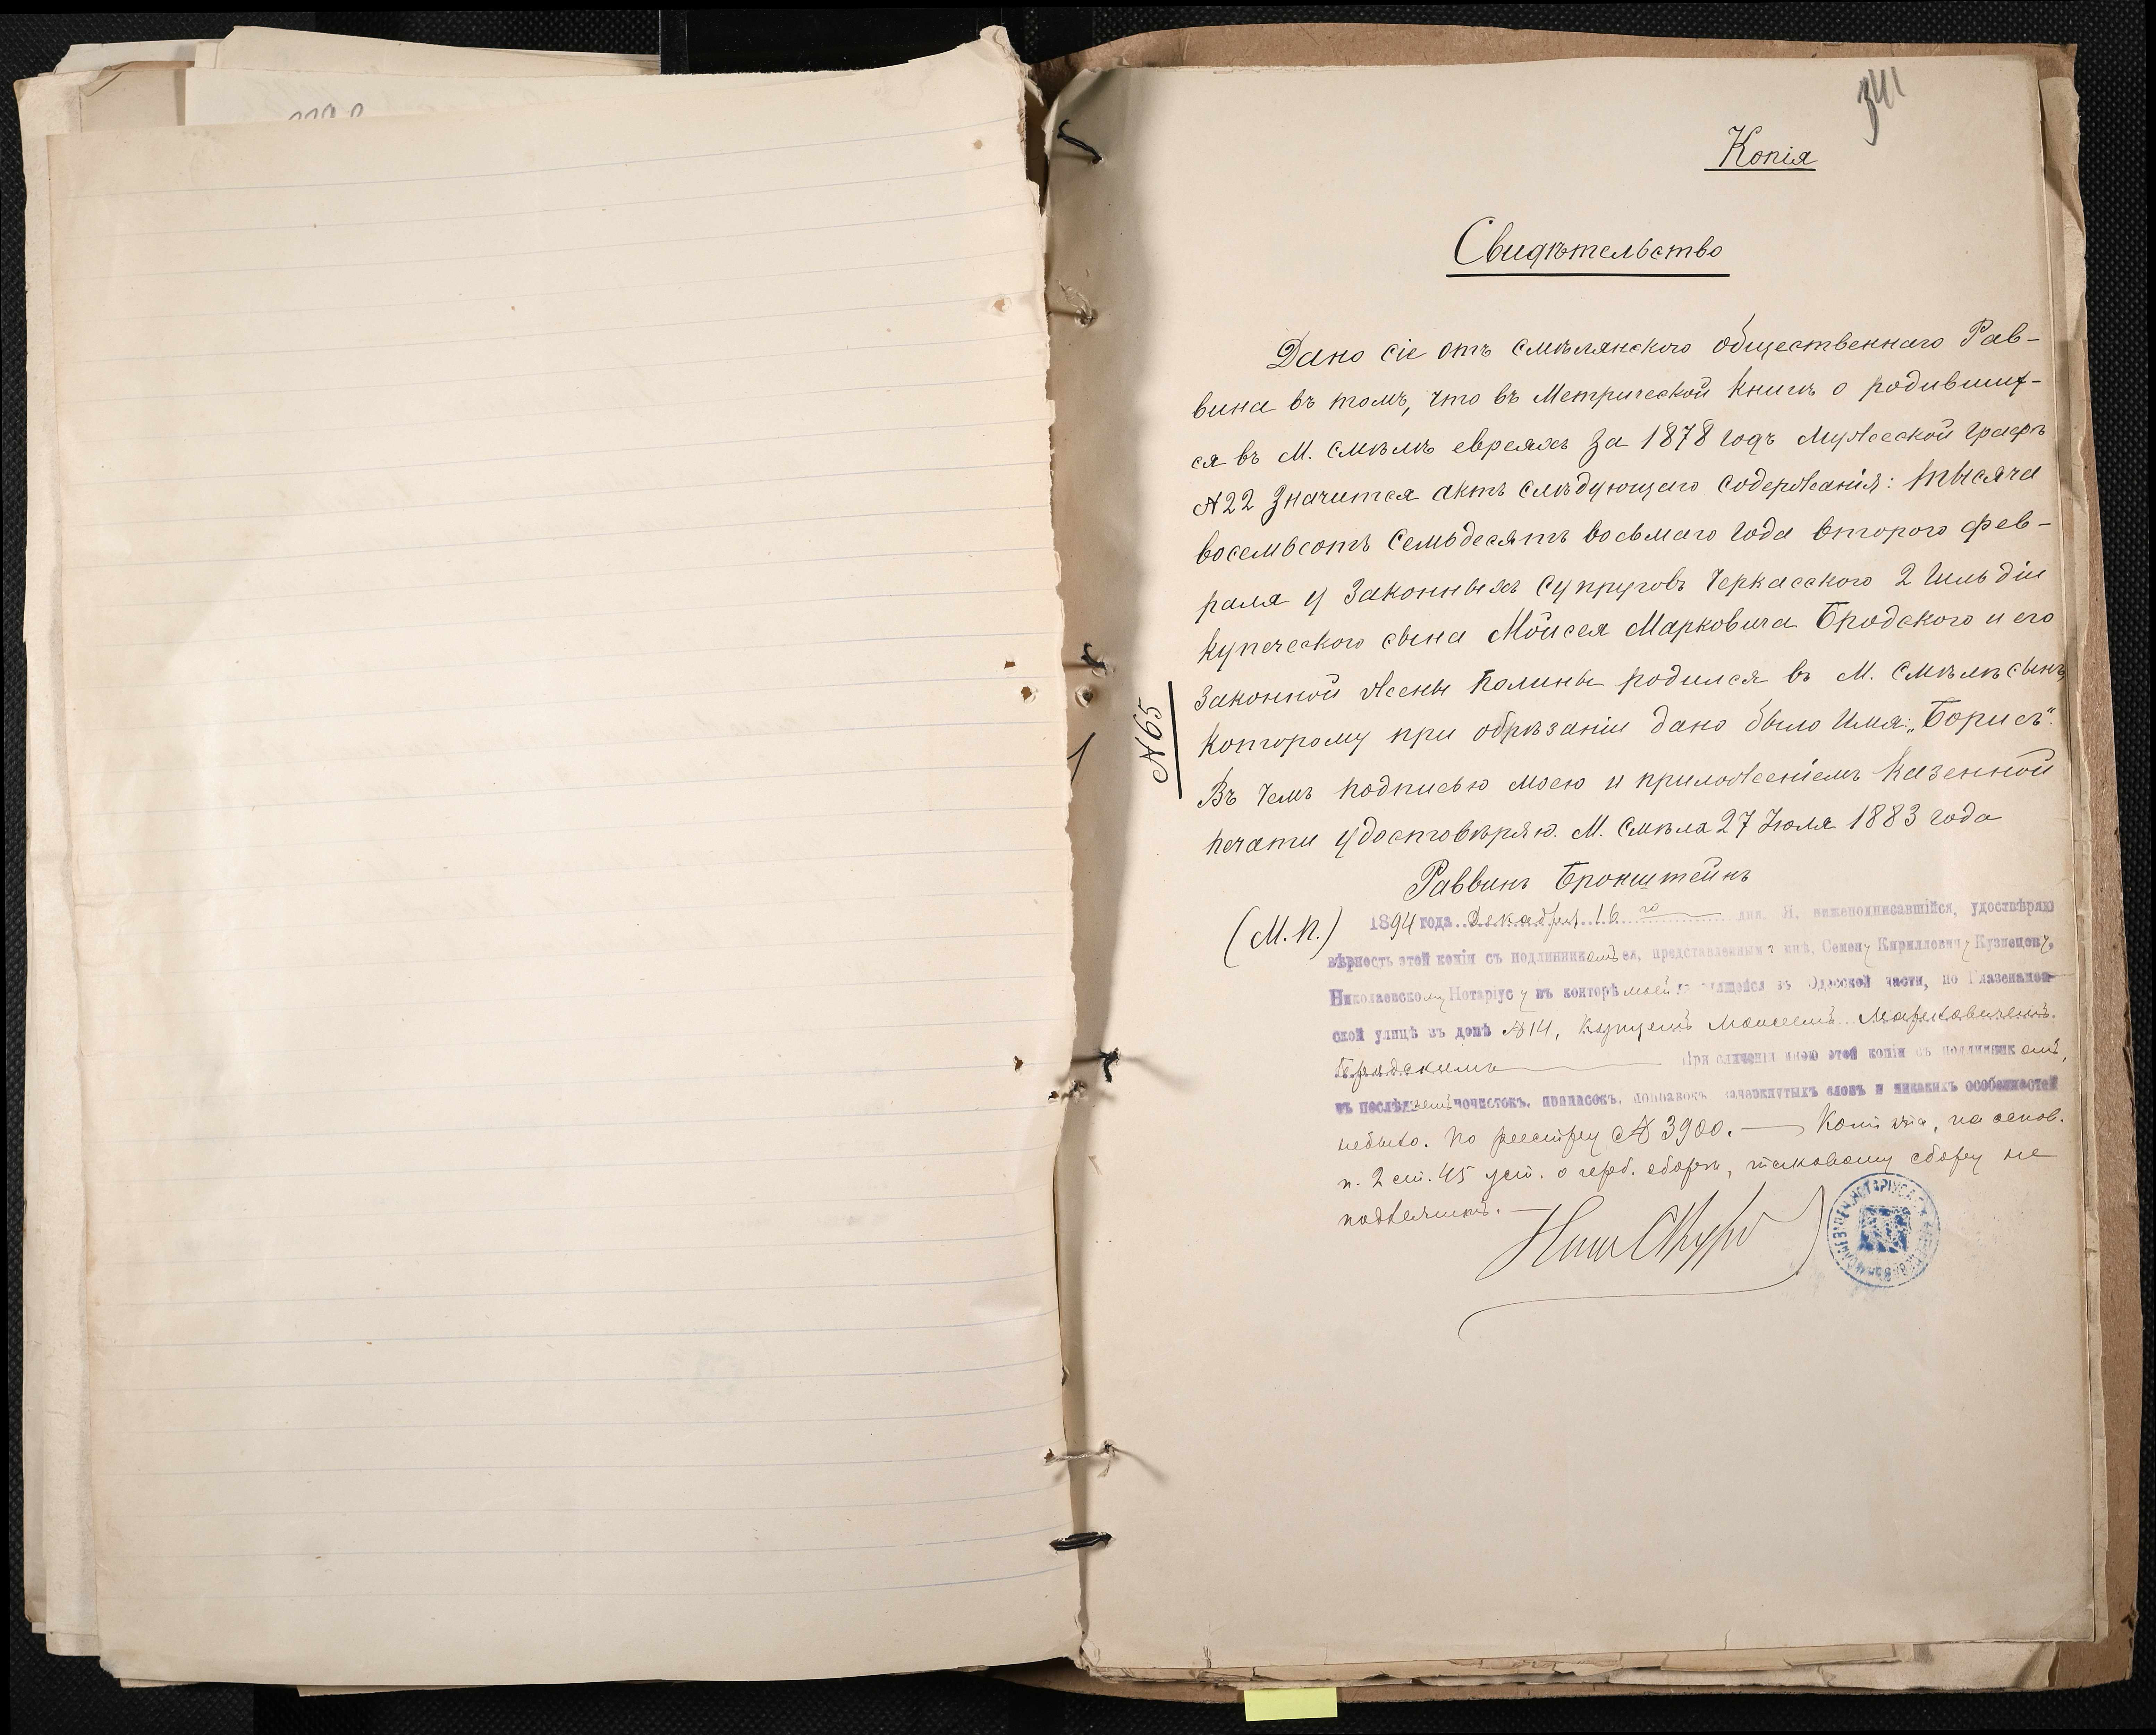 341
Копія
Свидѣтельство
Дано сіе отъ Смѣлянского общественнаго Рав-
вина въ томъ, что въ Метрической книгѣ о родивших-
ся въ М. Смѣлѣ евреяхъ за 1878 годъ Мужеской графѣ
№22 значится актъ слѣдующаго содержанія: тысяча
восемьсотъ семьдесятъ восьмаго года второго фев-
раля у законныхъ супруговъ Черкасского 2 гильдіи
купеческого сына Мойсея Марковича Бродского и его
законной жены Полины родился въ М. Смѣлѣ сынъ,
которому при обрѣзаніи дано было имя: „Борисъ".
Въ чемъ подписью моею и приложеніемъ казенной
печати удостовѣряю. М. Смѣла 27 Іюля 1883 года
Раввинъ Бронштейнъ
№65
(М. П.)
1894 года Декабря 16го дня. Я, нижеподписавшійся, удостовѣряю
вѣрность этой копіи съ подлинникомъ ея, представленнымъ мнѣ, Семену Кирилловичу Кузнецову,
Николаевскому Нотаріусу въ конторѣ моей находящейся въ Одесской части, по Глазенапов-
ской улицѣ въ домѣ №14, купцемъ Моисеемъ Марковичемъ
Бродскимъ При сличеніи мною этой копіи съ подлинникомъ,
въ послѣднемъ почистокъ, приписокъ, поправокъ, зачеркнутыхъ словъ и никакихъ особенностей
небыло. По реестру № 3900. — Копія эта, на основ.
п. 2 ст. 45 уст. о герб. сборѣ, таковому сбору не
подлежитъ. —